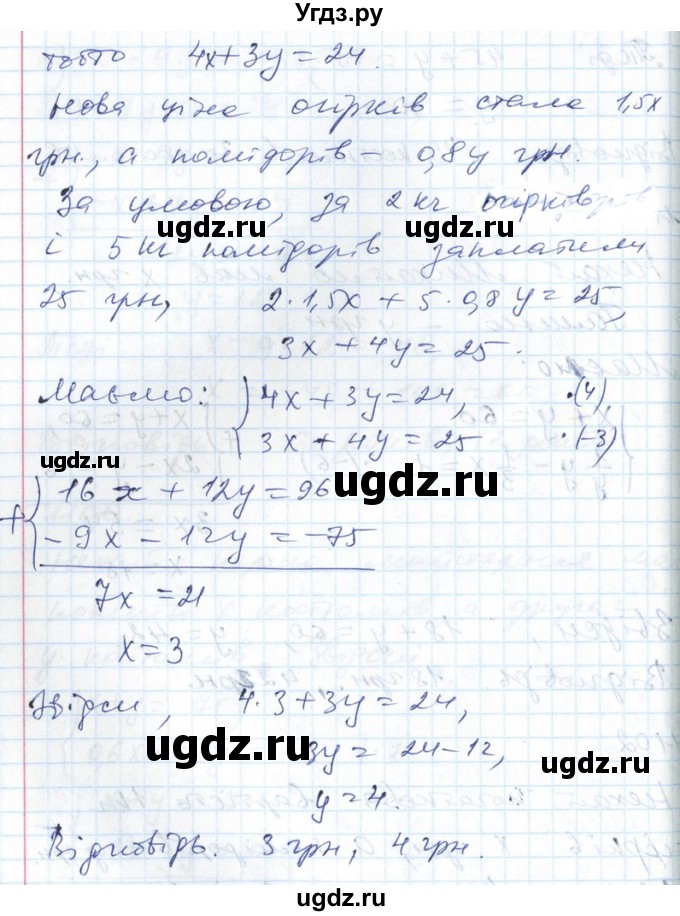 Угдз.ру
тобто 4x+3y=24.
Нова ціна огірків стала 1,5x
грн., а помідорів – 0,8y грн.
За умовою, за 2 кг огірків
ugdz.ru ugdz.ru
і 5 кг помідорів заплатили
25 грн, 2·1,5x + 5·0,8y = 25,
ugdz.ru
3x + 4y = 25.
Маємо: 4x + 3y = 24, ·(4)
3x + 4y = 25 ·(-3)
ugdz.ru
16x + 12y = 96 ugdz.ru
+ -9x - 12y = -75
7x = 21
x = 3
ugdz.ru
Звідси, 4·3+3y=24,
ugdz.ru 3y = 24-12,
y = 4.
Відповідь. 3 грн, 4 грн.
ugdz.ru ugdz.ru